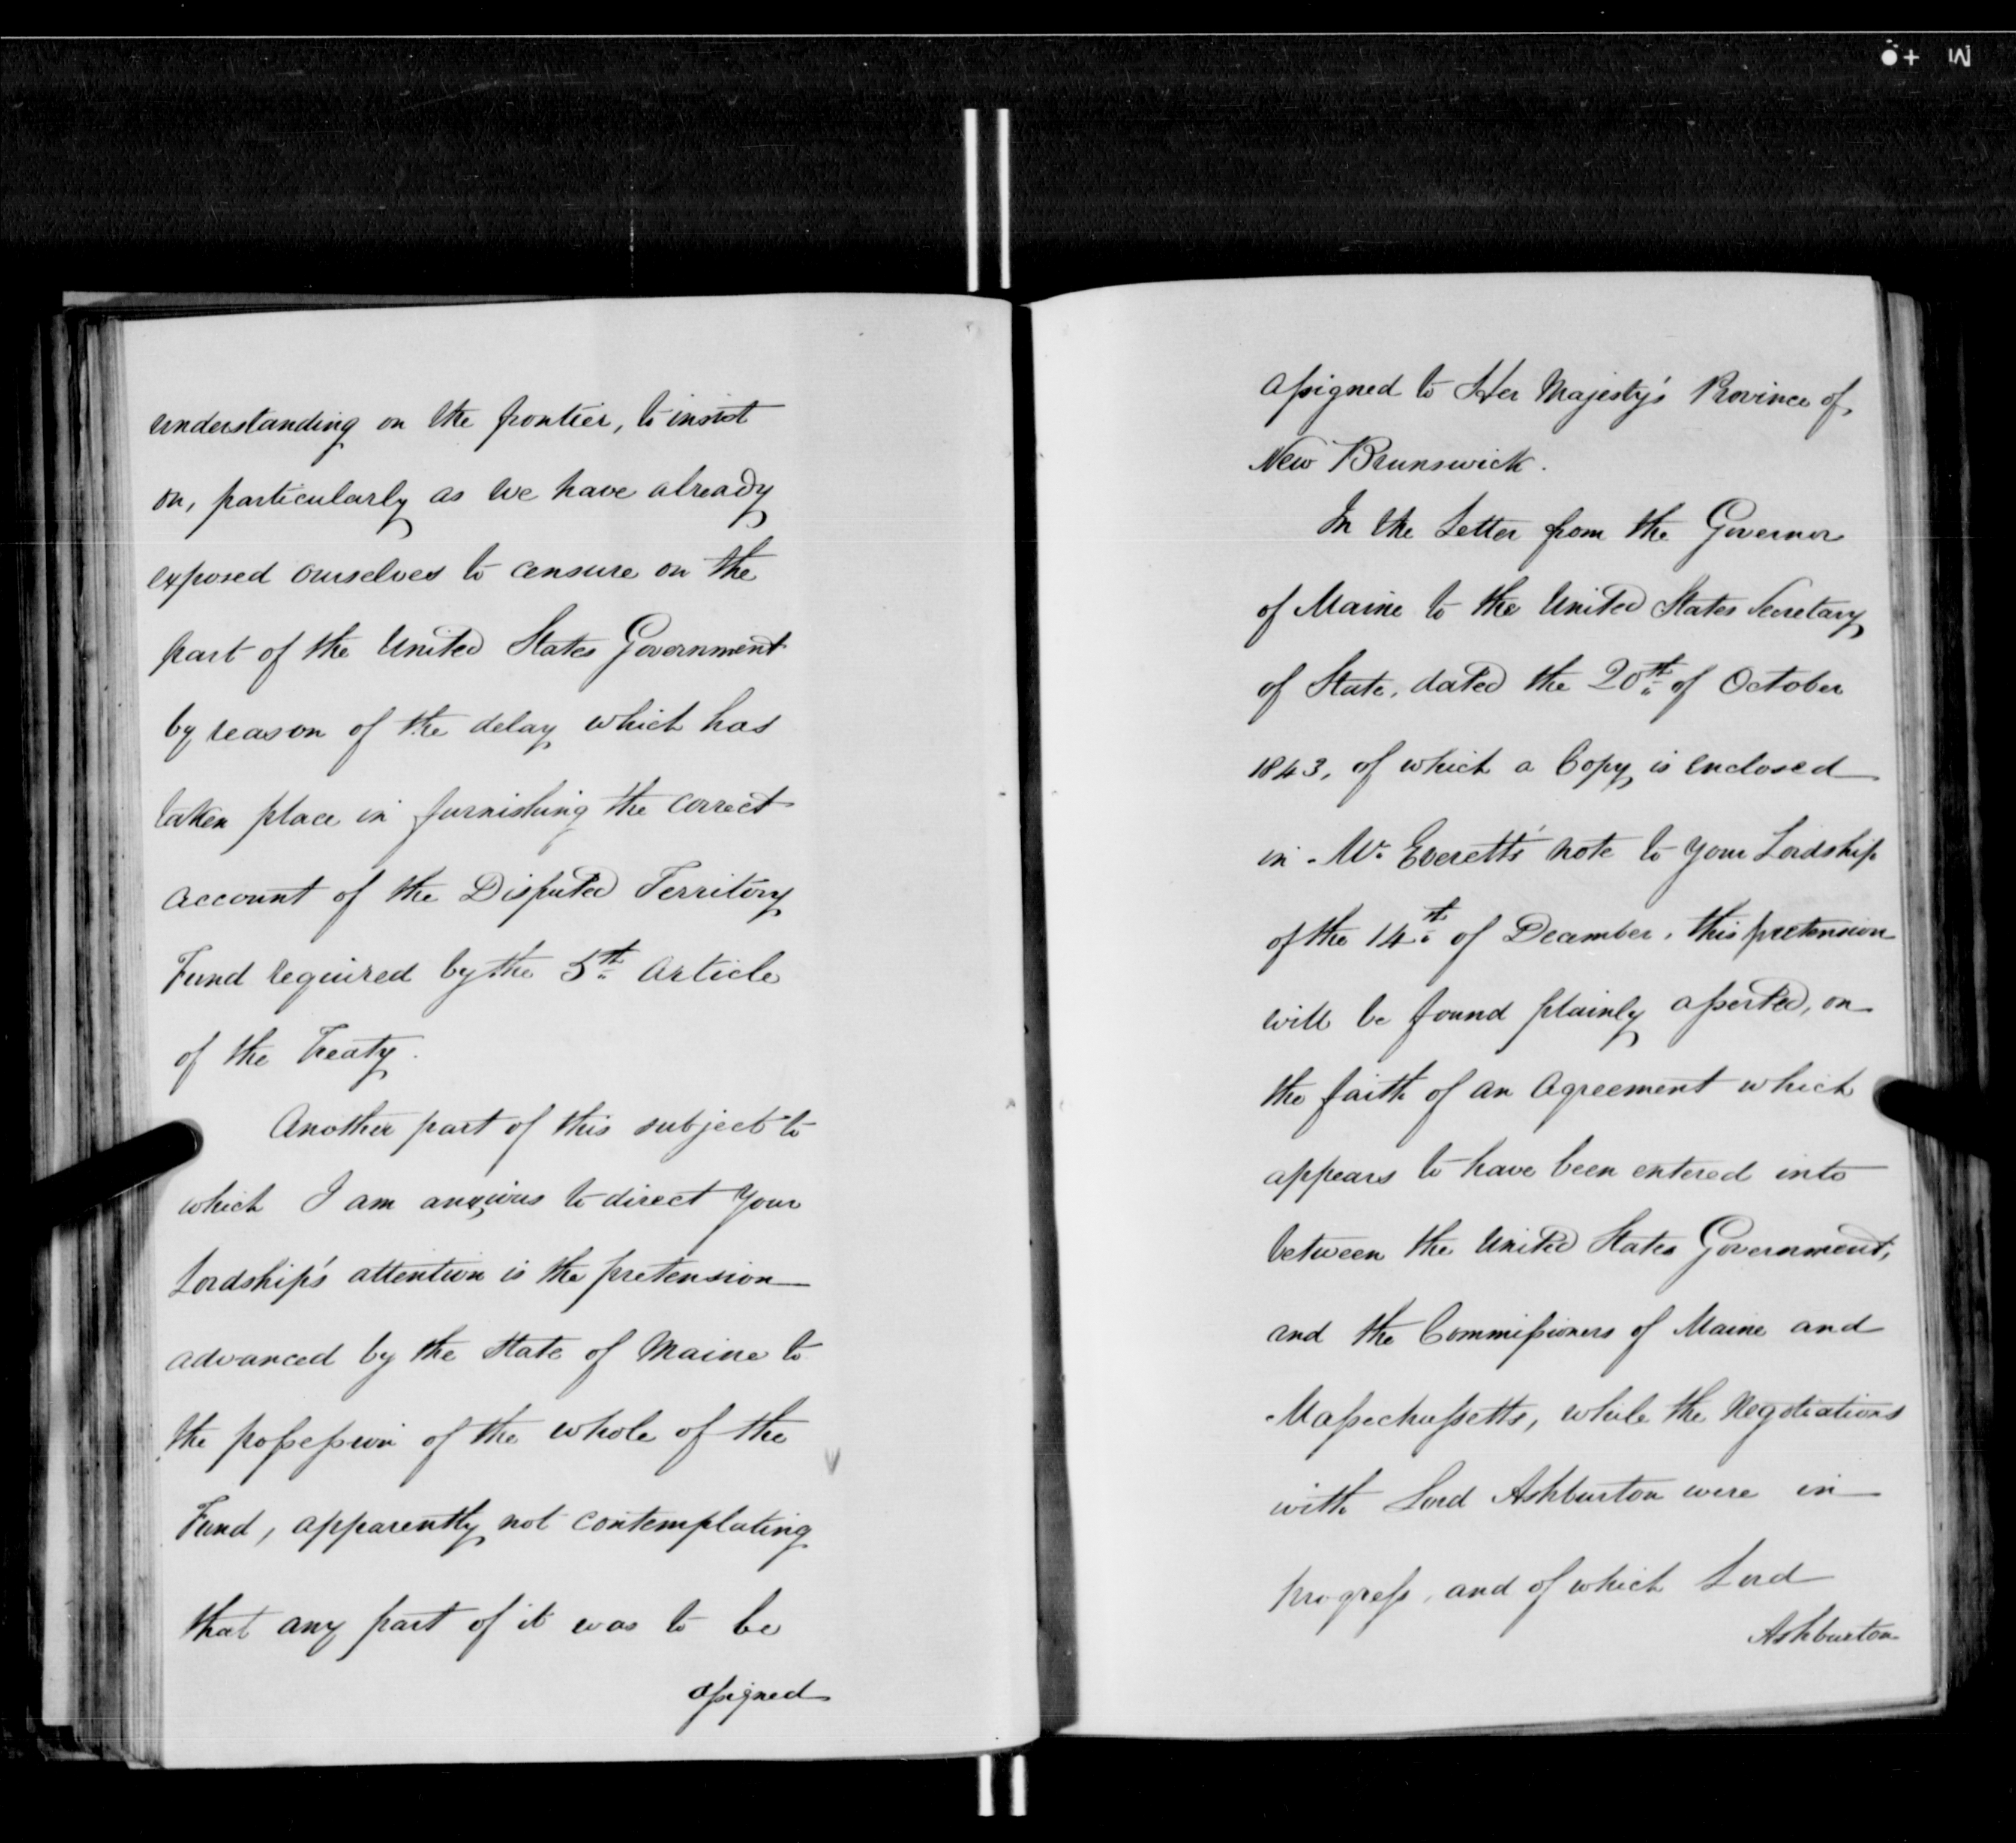 understanding on the frontier, to insist
on, particularly as we have already
exposed ourselves to censure on the
part of the United States Government
by reason of the delay which has
taken place in furnishing the correct
account of the Disputed Territory
Fund required by the 5th Article
of the Treaty.
Another part of this subject to
which I am anxious to direct Your
Lordship's attention is the pretension
advanced by the State of Maine to
the possession of the whole of the
Fund, apparently not contemplating
that any part of it was to be
assigned
assigned to Her Majesty's Province of
New Brunswick.
In the Letter from the Governor
of Maine to the United States Secretary
of State, dated the 20th of October
1843, of which a Copy is enclosed
in Mr. Everett's note to your Lordship
of the 14th of December, this pretension
will be found plainly asserted, on
the faith of an Agreement which
appears to have been entered into
between the United States Government,
and the Commissioners of Maine and
Massechussetts, while the Negotiations
with Lord Ashburton were in
progress, and of which Lord
Ashburton